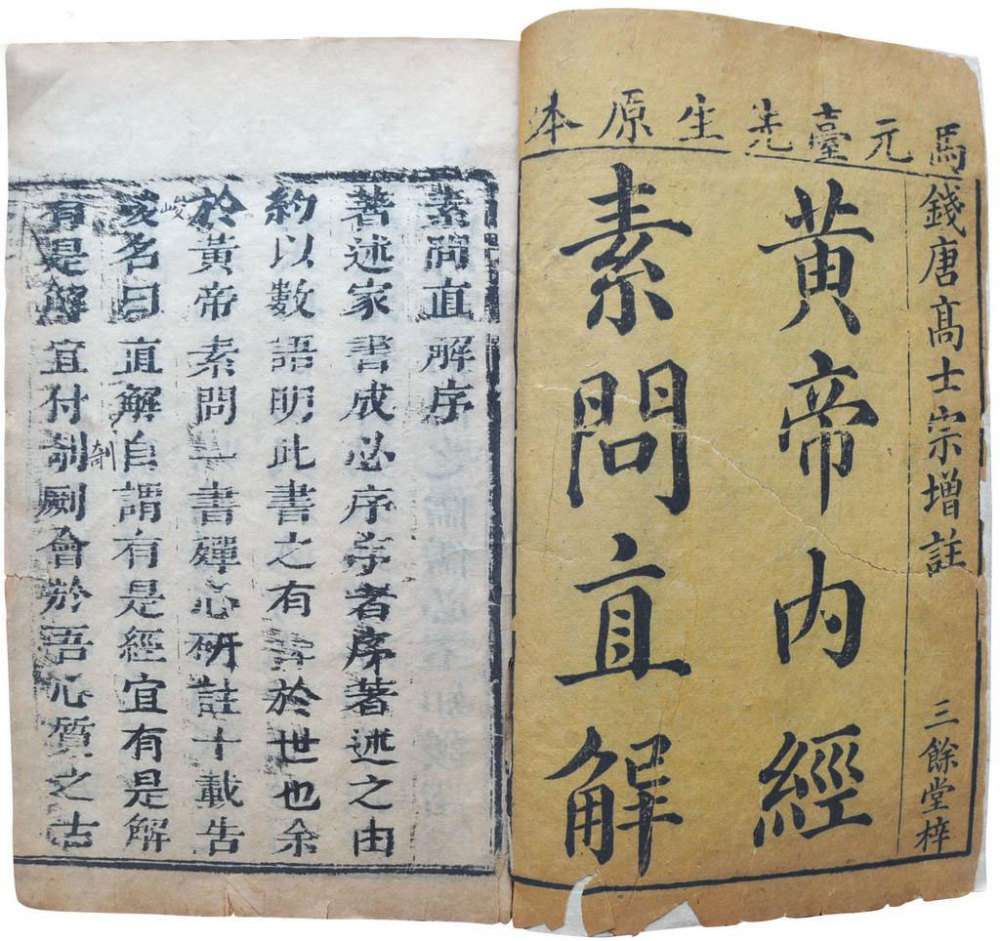 馬元臺先生原本
錢唐髙士宗增註 三餘堂梓
黄帝内經
素問直解
素問直解序
著述家書成必序序者序著述之由
約以數語明此書之有於世也余
於黃帝素問一書殫心研註十載告
峻
名曰直解自謂有是經宜有是解
剞
有是解宜付劂會於吾心質之古